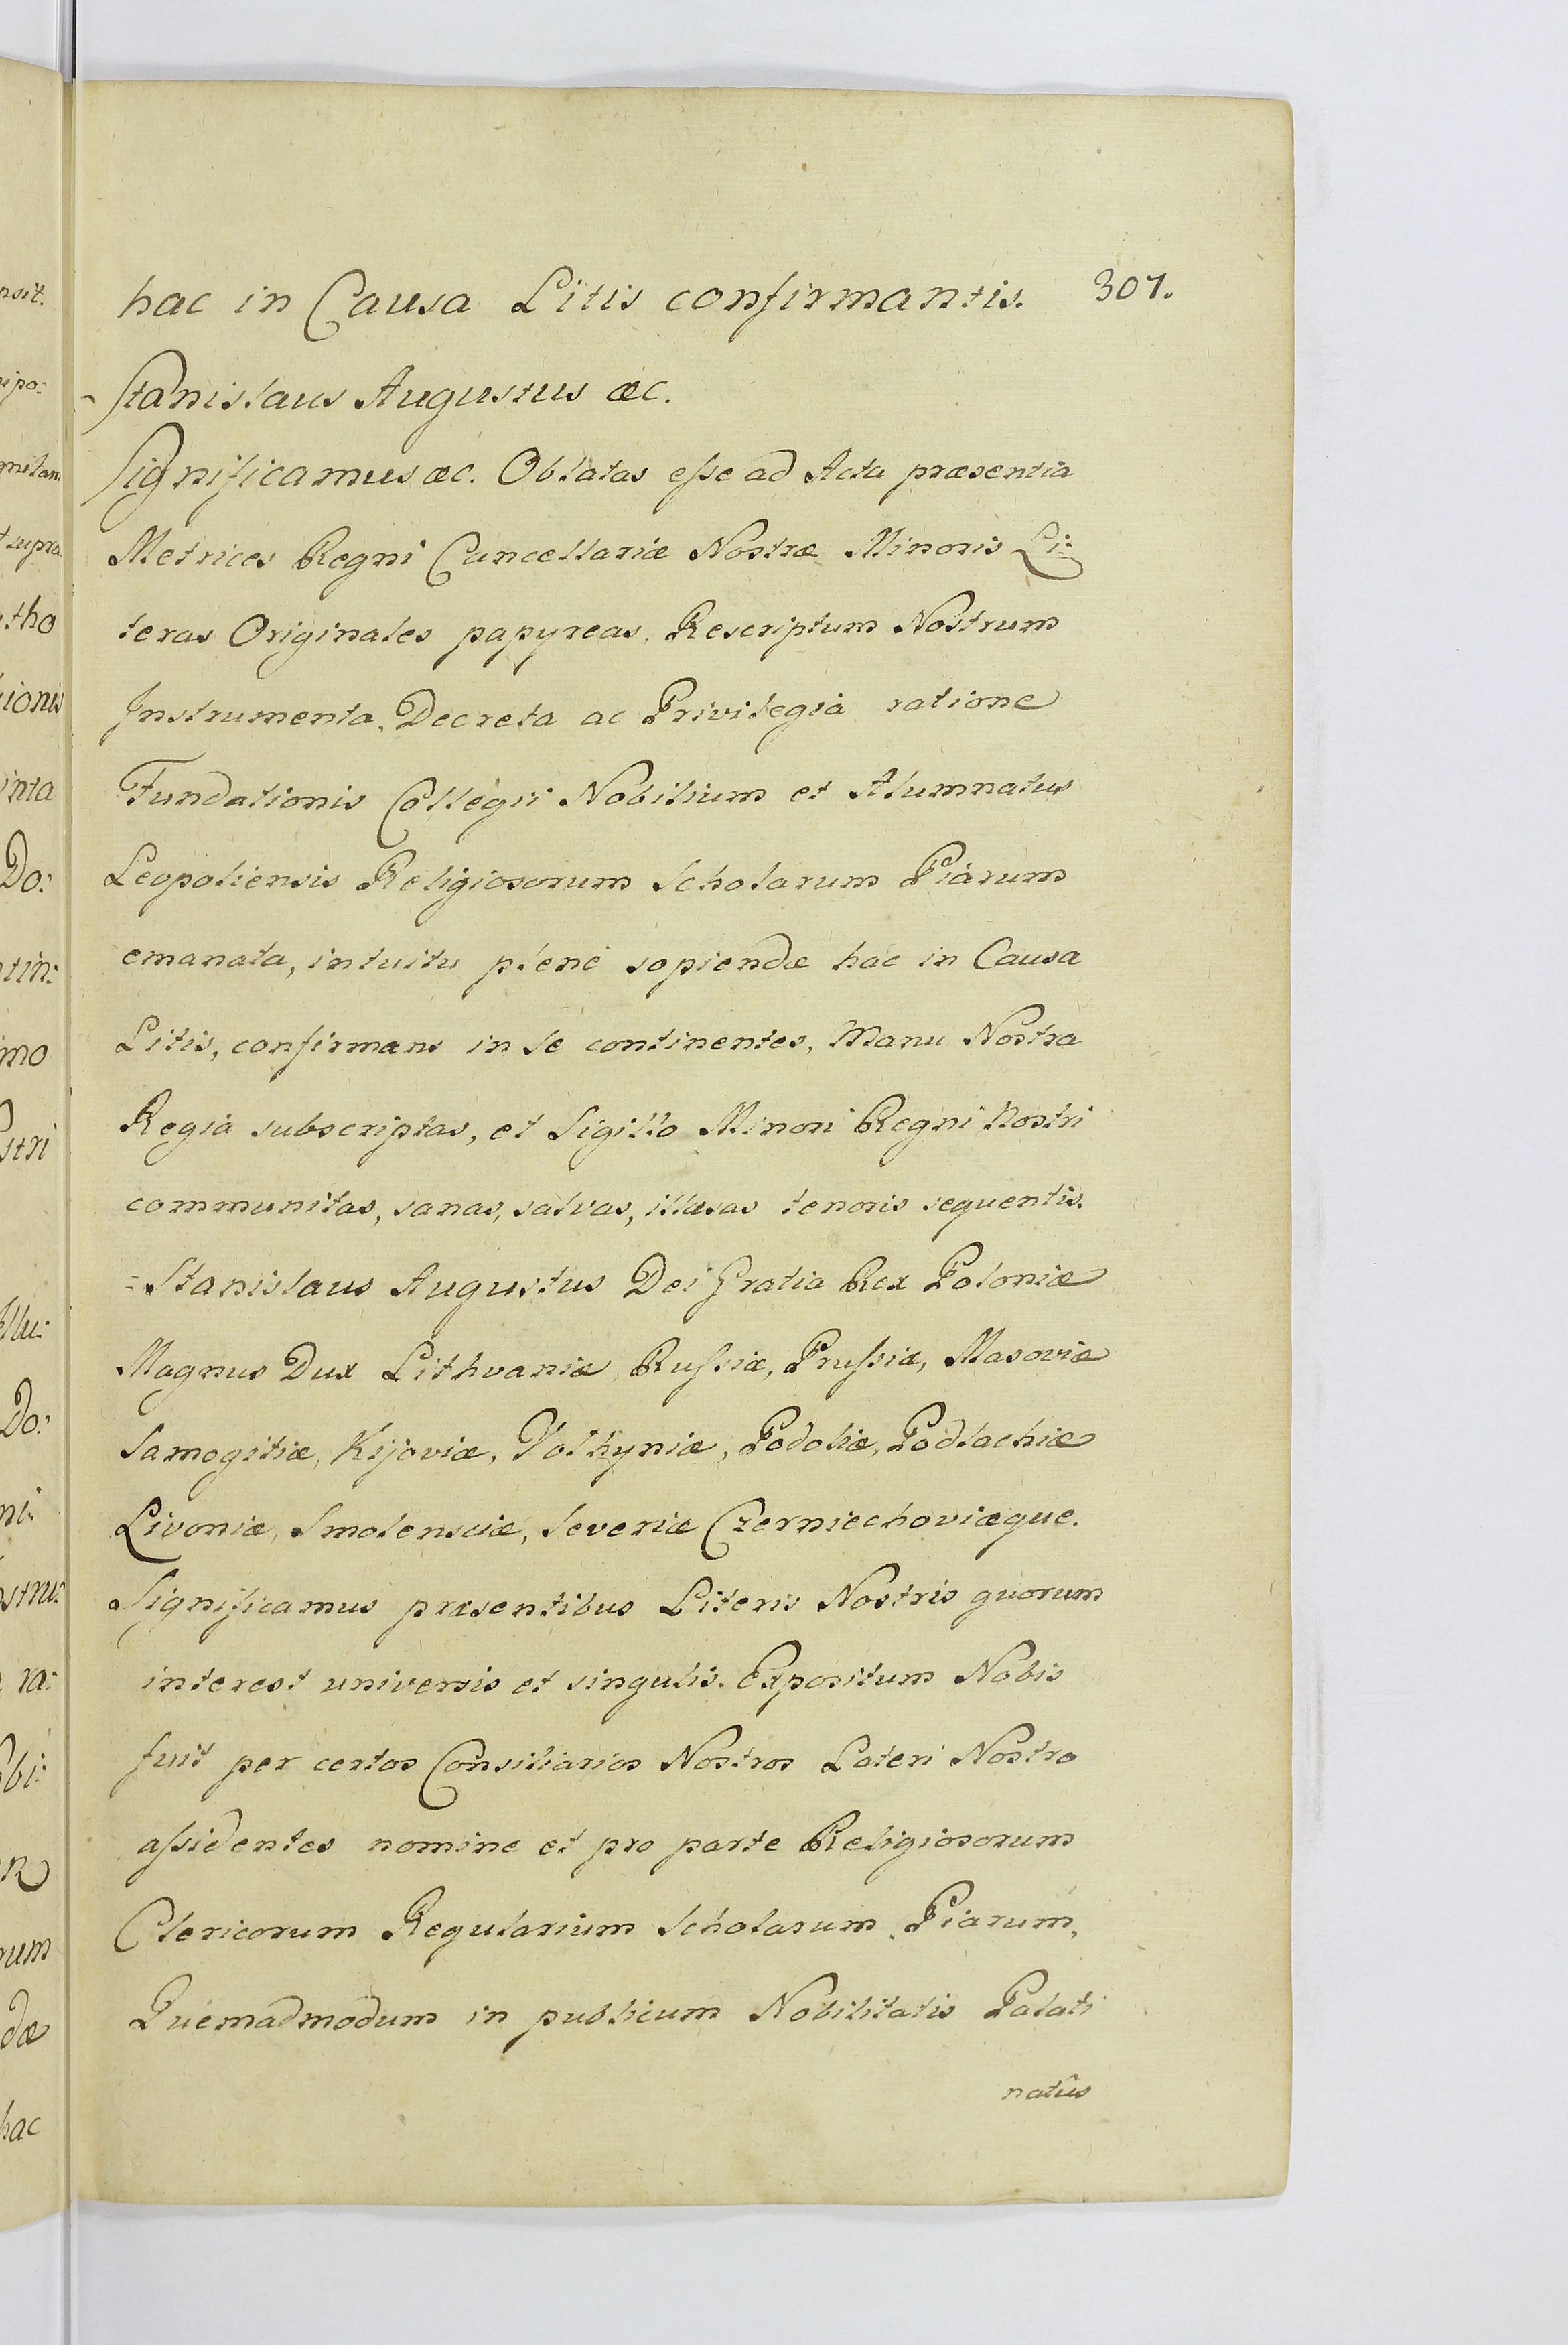 hac in Causa Litis confirmantis. 307.
Stanislaus Augustus æc.
Significamus æc. Oblatas eſse ad Acta præsentia
Metrices Regni Cancellariæ Nostræ Minoris Li:
teras Originales papyreas, Rescriptum Nostrum
Instrumenta, Decreta ac Privilegia ratione
Fundationis Collegii Nobilium et Alumnatus
Leopoliensis Religiosorum Scholarum Piarum
emanata, intuitu plenè sopiendæ hac in Causa
Litis, confirmans in se continentes, Manu Nostra
Regia subscriptas, et Sigillo Minori Regni Nostri
communitas, sanas, salvas, illæsas tenoris sequentis.
=Stanislaus Augustus Dei Gratia Rex Poloniæ
Magnus Dux Lithvaniæ, Ruſsiæ, Pruſsiæ, Masoviæ
Samogitiæ, Kijoviæ, Volhyniæ, Podoliæ, Podlachiæ
Livoniæ, Smolensciæ, Severiæ Czerniechoviæque.
Significamus præsentibus Literis Nostris quorum
interest universis et singulis. Expositum Nobis
fuit per certos Consiliarios Nostros Lateri Nostro
aſsidentes nomine et pro parte Religiosorum
Clericorum Regularium Scholarum Piarum,
Quemadmodum in publicum Nobilitatis Palati
natûs